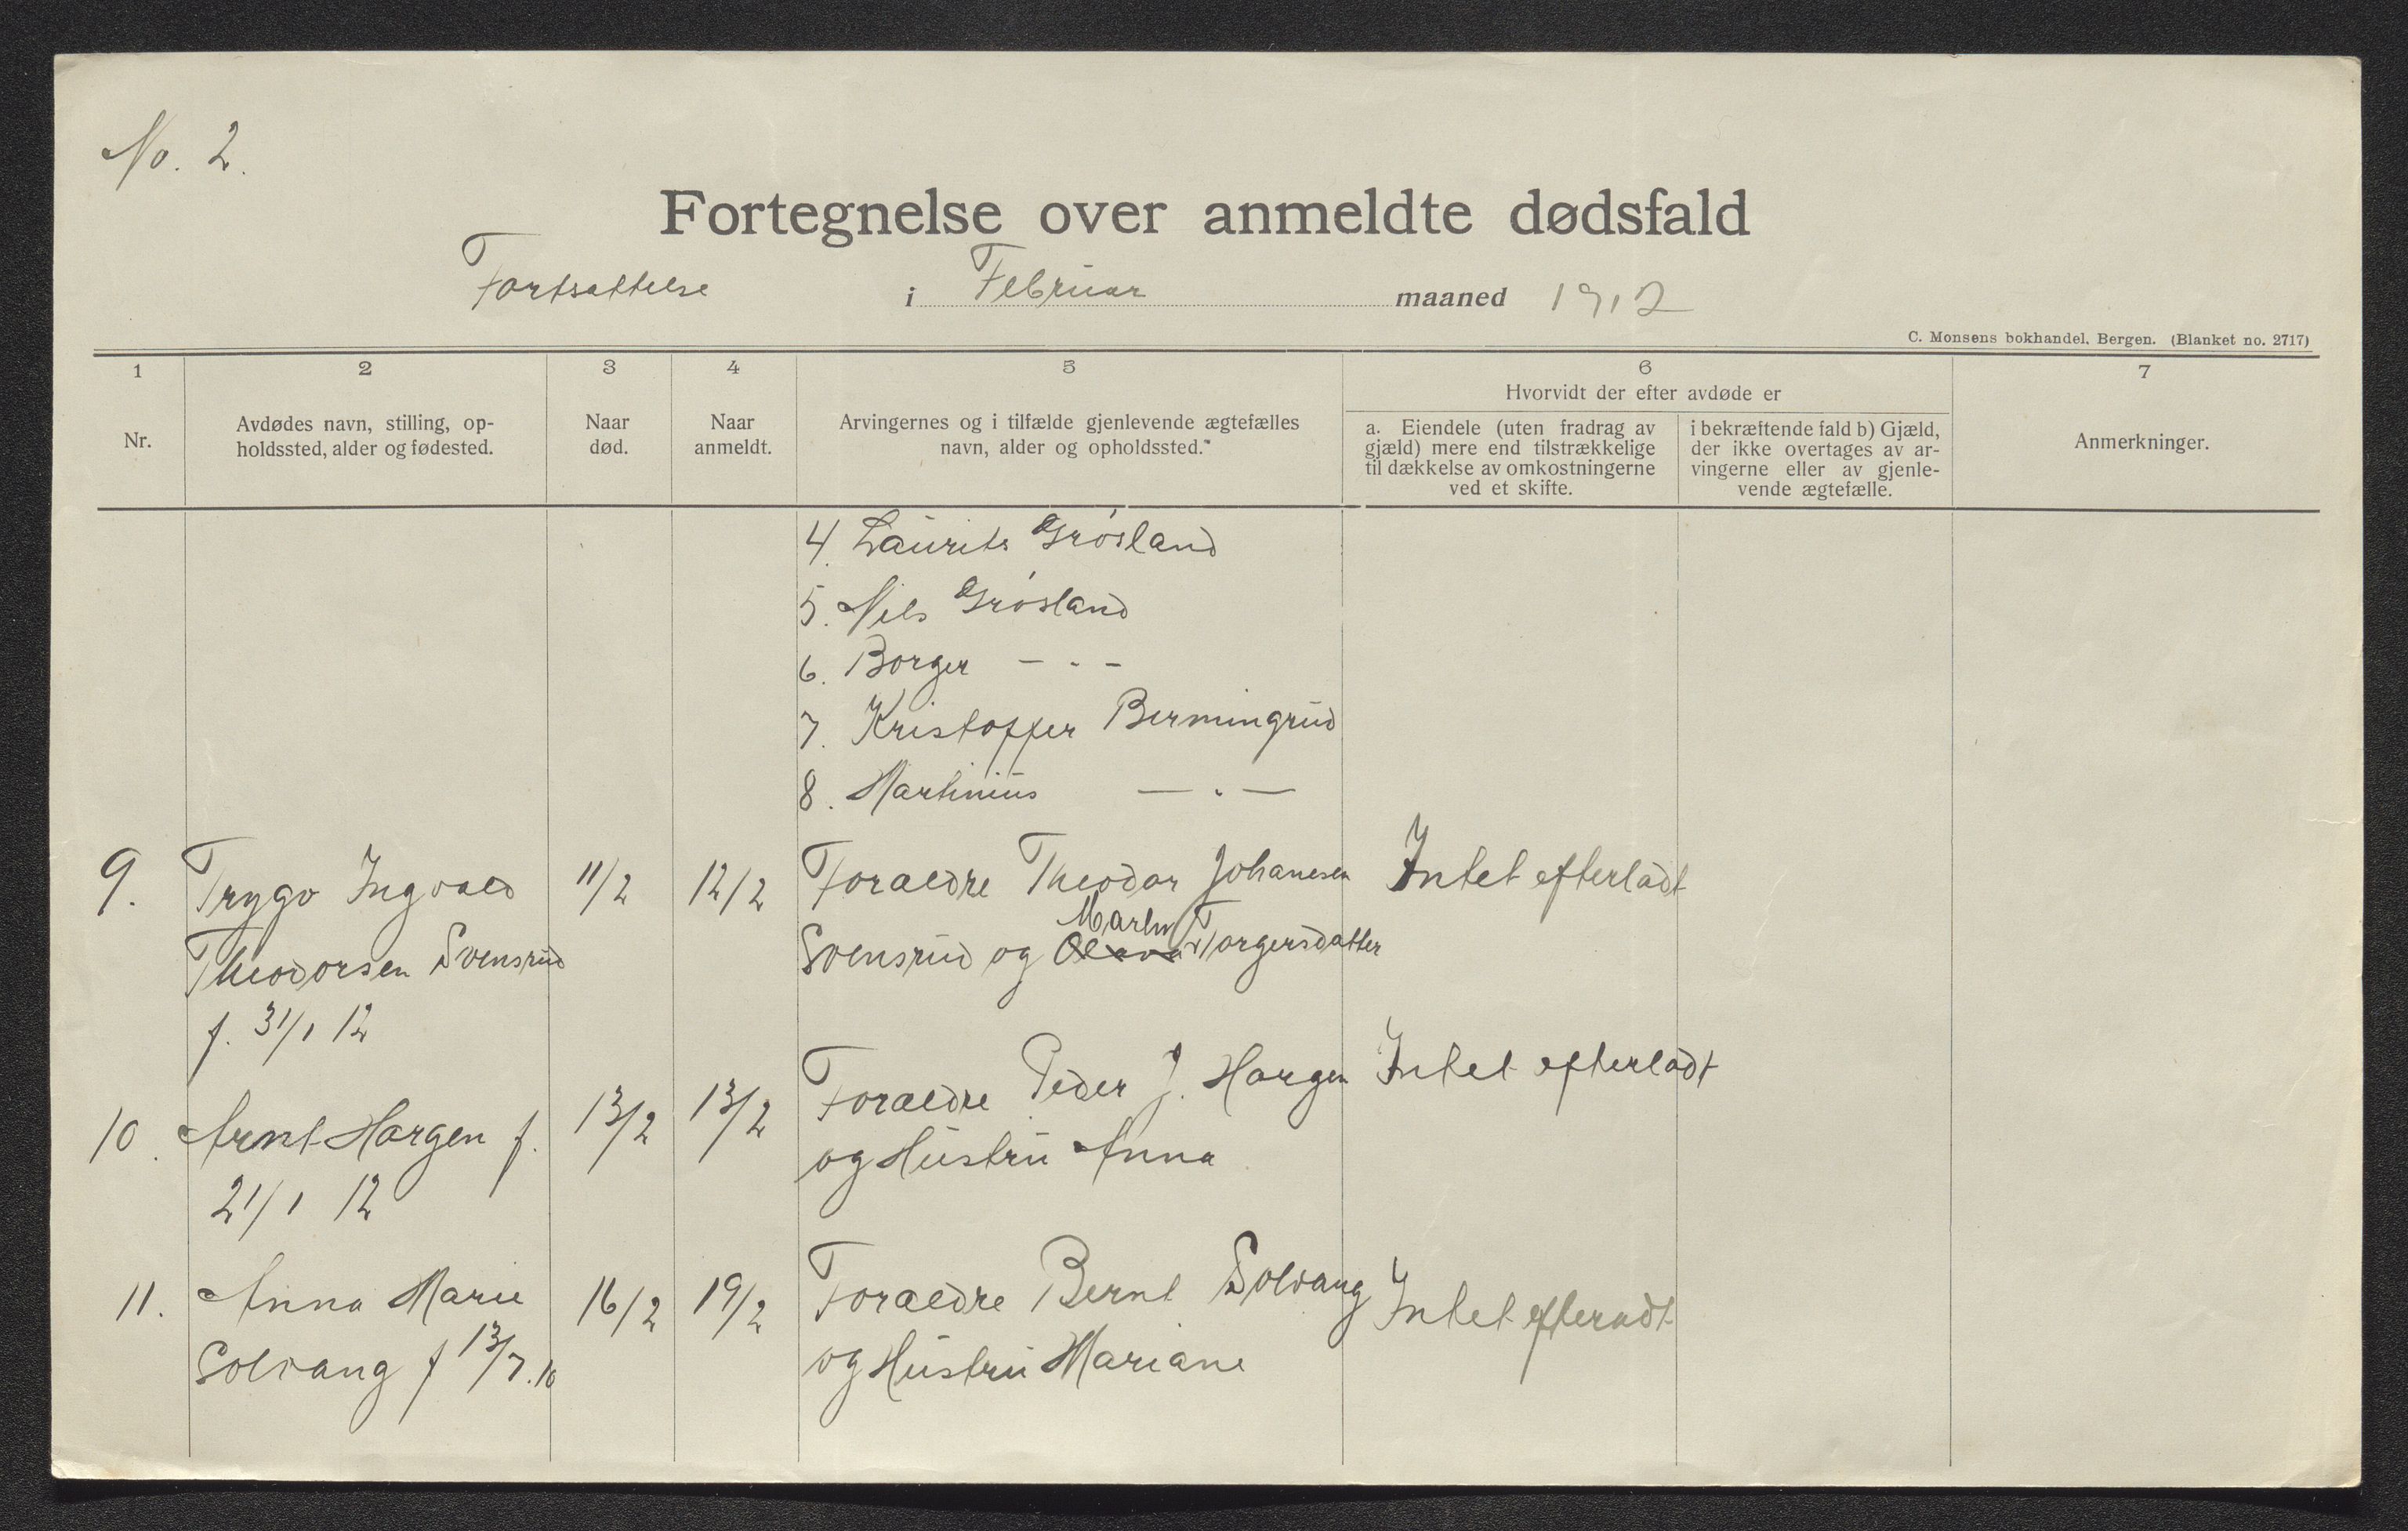 No. 2.
Fortegnelse over anmeldte dødsfald
Fortsattelse i Februar maaned 1912
C. Monsens bokhandel, Bergen. (Blanket no. 2717)
1 2 3 4 5 6 7
Hvorvidt der efter avdøde er
Nr.
Avdødes navn, stilling, op-
holdssted, alder og fødested.
Naar
død.
Naar
anmeldt.
Arvingernes og i tilfælde gjenlevende ægtefælles
navn, alder og opholdssted.*
a. Eiendele (uten fradrag av
gjæld) mere end tilstrækkelige
til dækkelse av omkostningerne
ved et skifte.
i bekræftende fald b) Gjæld,
der ikke overtages av ar-
vingerne eller av gjenle-
vende ægtefælle.
Anmerkninger.
4. Laurits Grøsland
5. Nils Grøsland
6. Borger - " -
7. Kristoffer Bermingrud
8. Martinius — " —
9. Trygv Ingvald 11/2 12/2 Foraedre Theodor Johanesen Intet efterladt
Marhn
Theodorsen Svensrud Svensrud og Torgersdatter
f. 31/1 12
10. Arnt Horgen f. 13/2 13/2 Foraedre Peder J. Horgen Intet efterladt
21/1 12 og Hustru Anna
11. Anna Marie 16/2 19/2 Foraedre Bernt Solvang Intet efteradt
Solvang f 13/7. 10 og Hustru Mariane